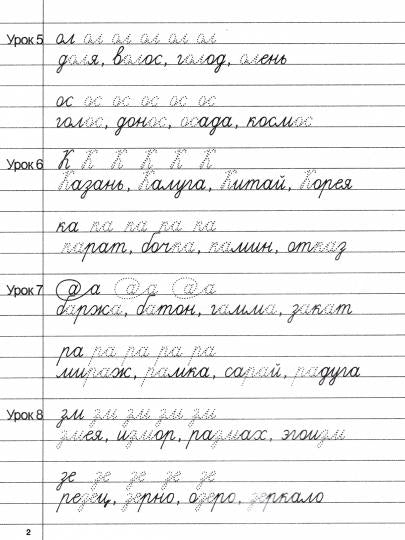 Урок 5 ол ол ол ол ол ол
доля, волос, голод, олень
ос ос ос ос ос ос
голос, донос, осада, космос
Урок 6 К К К К К К
Казань, Калуга, Китай, Корея
ка ка ка ка ка
карат, бочка, камин, отказ
Урок 7 @ а @ а @ а
баржа, батон, гамма, закат
ра ра ра ра ра
мираж, рамка, сарай, радуга
Урок 8 зм зм зм зм зм
змея, измор, размах, эгоизм
зе зе зе зе зе
резец, зерно, озеро, зеркало
2